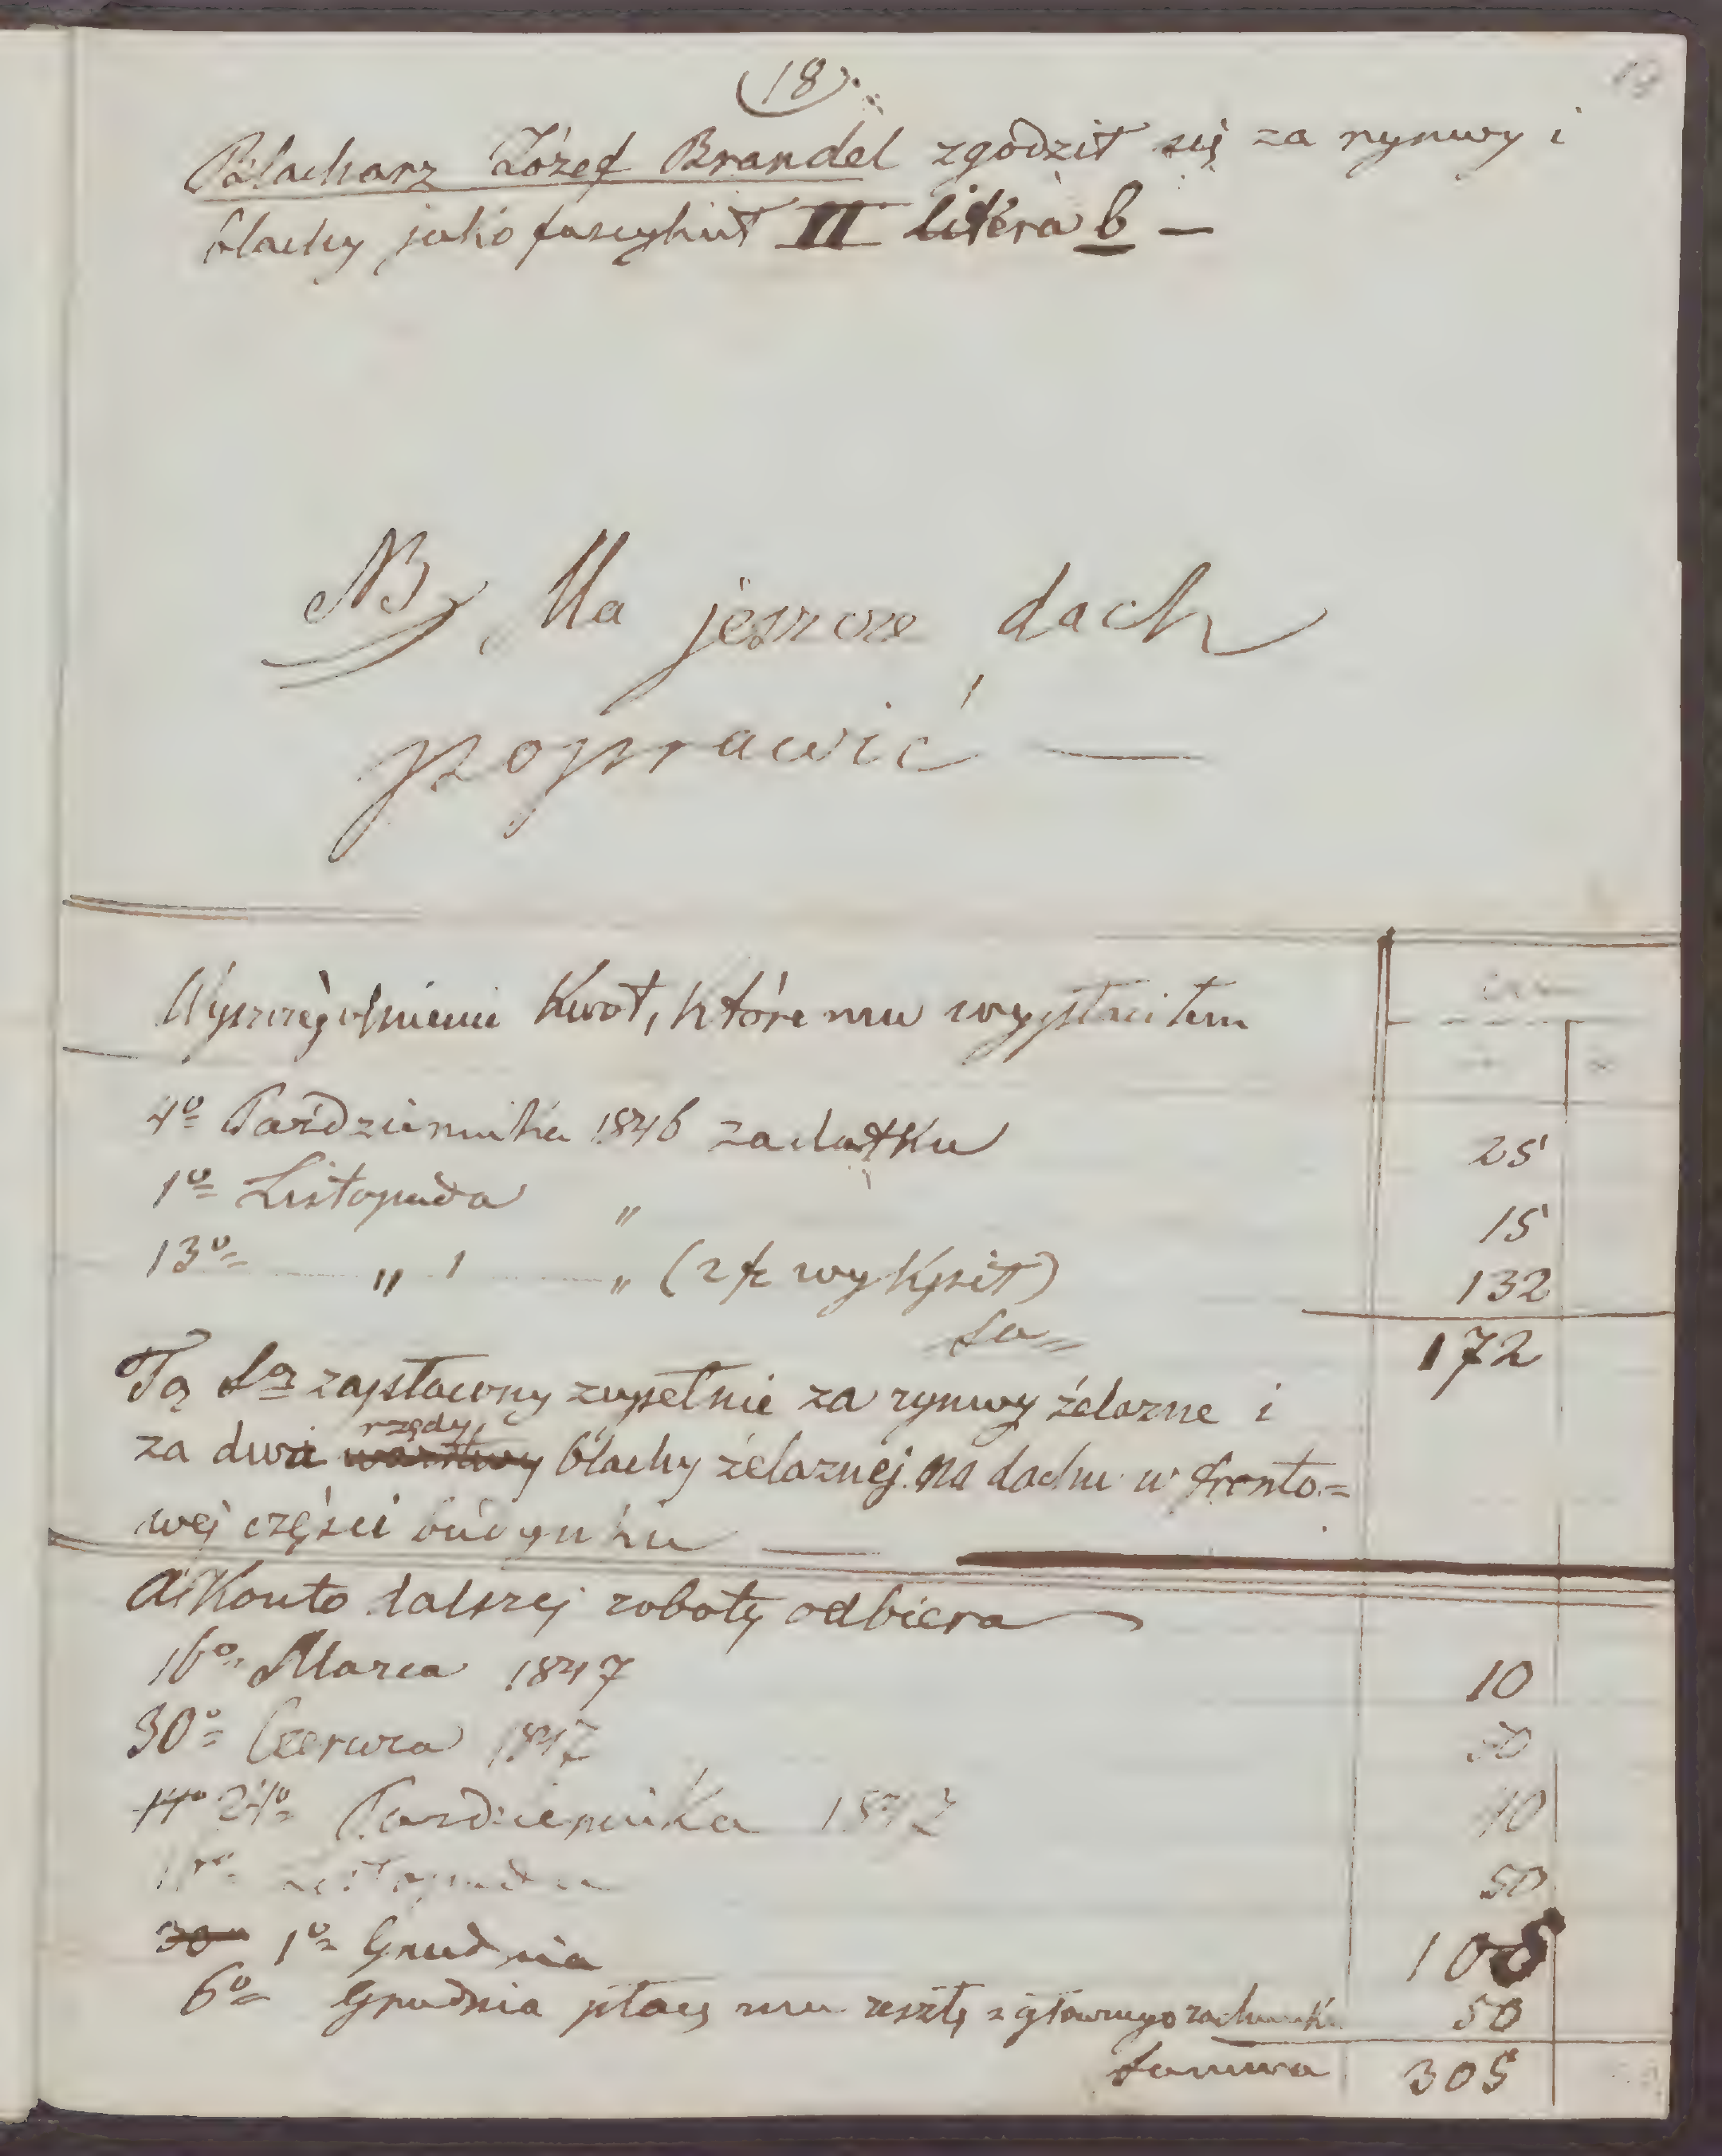 18
19
Blacharz Józef Brandel zgodził się za rynwy i
blachy jako fascykuł II litera b —
NB Ma jeszcze dach
poprawić —
Wyszczególnienie Kwot, które mu wypłaciłem
4º Października 1846 zadatku 25
1º Listopada " 15
13º " " (2 fr wykpił) 132
Sa 172
Tą Są zapłacony zupełnie za rynwy żelazne i
rzędy
za dwa warstwy blachy żelaznej na dachu w fronto=
wej części budynku —
à Konto dalszej roboty odbiera
16º Marca 1847 10
30º Czerwca 1847
14º 24º Października 1847 10
Listopada 50
30 1º Grudnia 105
6º Grudnia płacę mu resztę z głównego rachunku 50
Summa 305